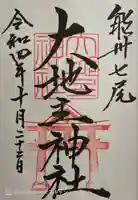 能州七尾
大地主神社
令和四年十月二十三日